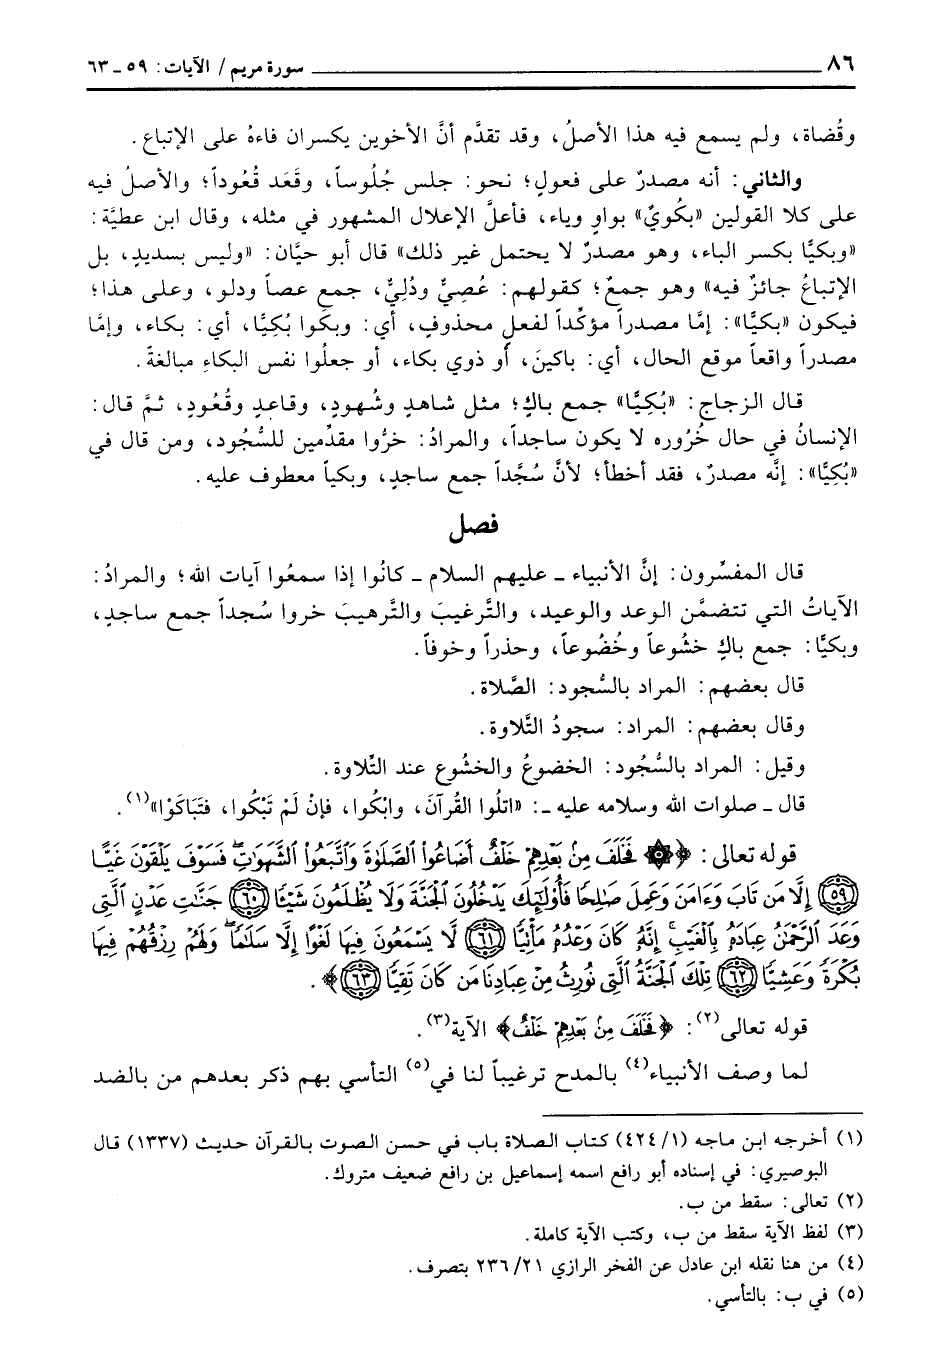 ٨٦ ـــــــــــــــــــــــــــــــــــــــــــــــ سورة مريم / الآيات: ٥٩ ـ ٦٣
وقُضاة، ولم يسمع فيه هذا الأصلُ، وقد تقدَّم أنَّ الأخوين يكسران فاءهُ على الإتباع.
والثاني: أنه مصدرٌ على فعولٍ؛ نحو: جلس جُلُوساً، وقَعَد قُعُوداً؛ والأصلُ فيه
على كلا القولين «بكُويٌ» بواوٍ وياء، فأعلَّ الإعلال المشهور في مثله، وقال ابن عطيَّة:
«وبكيًّا بكسر الباء، وهو مصدرٌ لا يحتمل غير ذلك» قال أبو حيَّان: «وليس بسديدٍ، بل
الإتباعُ جائزٌ فيه» وهو جمعٌ؛ كقولهم: عُصِيٌّ ودُلِيٌّ، جمع عصاً ودلو، وعلى هذا؛
فيكون «بكيًّا»: إمَّا مصدراً مؤكِّداً لفعلٍ محذوفٍ، أي: وبكَوا بُكِيًّا، أي: بكاء، وإمَّا
مصدراً واقعاً موقع الحال، أي: باكينَ، أو ذوي بكاء، أو جعلُوا نفس البكاءِ مبالغةً.
قال الزجاج: «بُكِيًّا» جمع باكٍ؛ مثل شاهدٍ وشُهودٍ، وقاعدٍ وقُعُود، ثمَّ قال:
الإنسانُ في حال خُرُوره لا يكون ساجداً، والمرادُ: خرُّوا مقدِّمين للسُّجُود، ومن قال في
«بُكِيًّا»: إنَّه مصدرٌ، فقد أخطأ؛ لأنَّ سُجَّداً جمع ساجدٍ، وبكياً معطوف عليه.
فصل
قال المفسِّرون: إنَّ الأنبياء ـ عليهم السلام ـ كانُوا إذا سمعُوا آيات الله؛ والمرادُ:
الآياتُ التي تتضمَّن الوعد والوعيد، والتَّرغيبَ والتَّرهيبَ خروا سُجداً جمع ساجدٍ،
وبكيًّا: جمع باكٍ خشُوعاً وخُضُوعاً، وحذراً وخوفاً.
قال بعضهم: المراد بالسُّجود: الصَّلاة.
وقال بعضهم: المراد: سجودُ التَّلاوة.
وقيل: المراد بالسُّجُود: الخضوعُ والخشُوع عند التِّلاوة.
قال ـ صلوات الله وسلامه عليه ـ: «اتلُوا القُرآنَ، وابْكُوا، فإنْ لَمْ تَبْكُوا، فتَبَاكَوْا»(١).
قوله تعالى: ﴿۞ فَخَلَفَ مِنۢ بَعْدِهِمْ خَلْفٌ أَضَاعُوا۟ ٱلصَّلَوٰةَ وَٱتَّبَعُوا۟ ٱلشَّهَوَٰتِ ۖ فَسَوْفَ يَلْقَوْنَ غَيًّا
(٥٩) إِلَّا مَن تَابَ وَءَامَنَ وَعَمِلَ صَٰلِحًا فَأُو۟لَٰٓئِكَ يَدْخُلُونَ ٱلْجَنَّةَ وَلَا يُظْلَمُونَ شَيْـًٔا (٦٠) جَنَّٰتِ عَدْنٍ ٱلَّتِى
وَعَدَ ٱلرَّحْمَٰنُ عِبَادَهُۥ بِٱلْغَيْبِ ۚ إِنَّهُۥ كَانَ وَعْدُهُۥ مَأْتِيًّا (٦١) لَّا يَسْمَعُونَ فِيهَا لَغْوًا إِلَّا سَلَٰمًا ۖ وَلَهُمْ رِزْقُهُمْ فِيهَا
بُكْرَةً وَعَشِيًّا (٦٢) تِلْكَ ٱلْجَنَّةُ ٱلَّتِى نُورِثُ مِنْ عِبَادِنَا مَن كَانَ تَقِيًّا (٦٣)﴾.
قوله تعالى(٢): ﴿فَخَلَفَ مِنۢ بَعْدِهِمْ خَلْفٌ﴾ الآية(٣).
لما وصف الأنبياء(٤) بالمدح ترغيباً لنا في(٥) التأسي بهم ذكر بعدهم من بالضد
(١) أخرجه ابن ماجه (١/ ٤٢٤) كتاب الصلاة باب في حسن الصوت بالقرآن حديث (١٣٣٧) قال
البوصيري: في إسناده أبو رافع اسمه إسماعيل بن رافع ضعيف متروك.
(٢) تعالى: سقط من ب.
(٣) لفظ الآية سقط من ب، وكتب الآية كاملة.
(٤) من هنا نقله ابن عادل عن الفخر الرازي ٢١/ ٢٣٦ بتصرف.
(٥) في ب: بالتأسي.